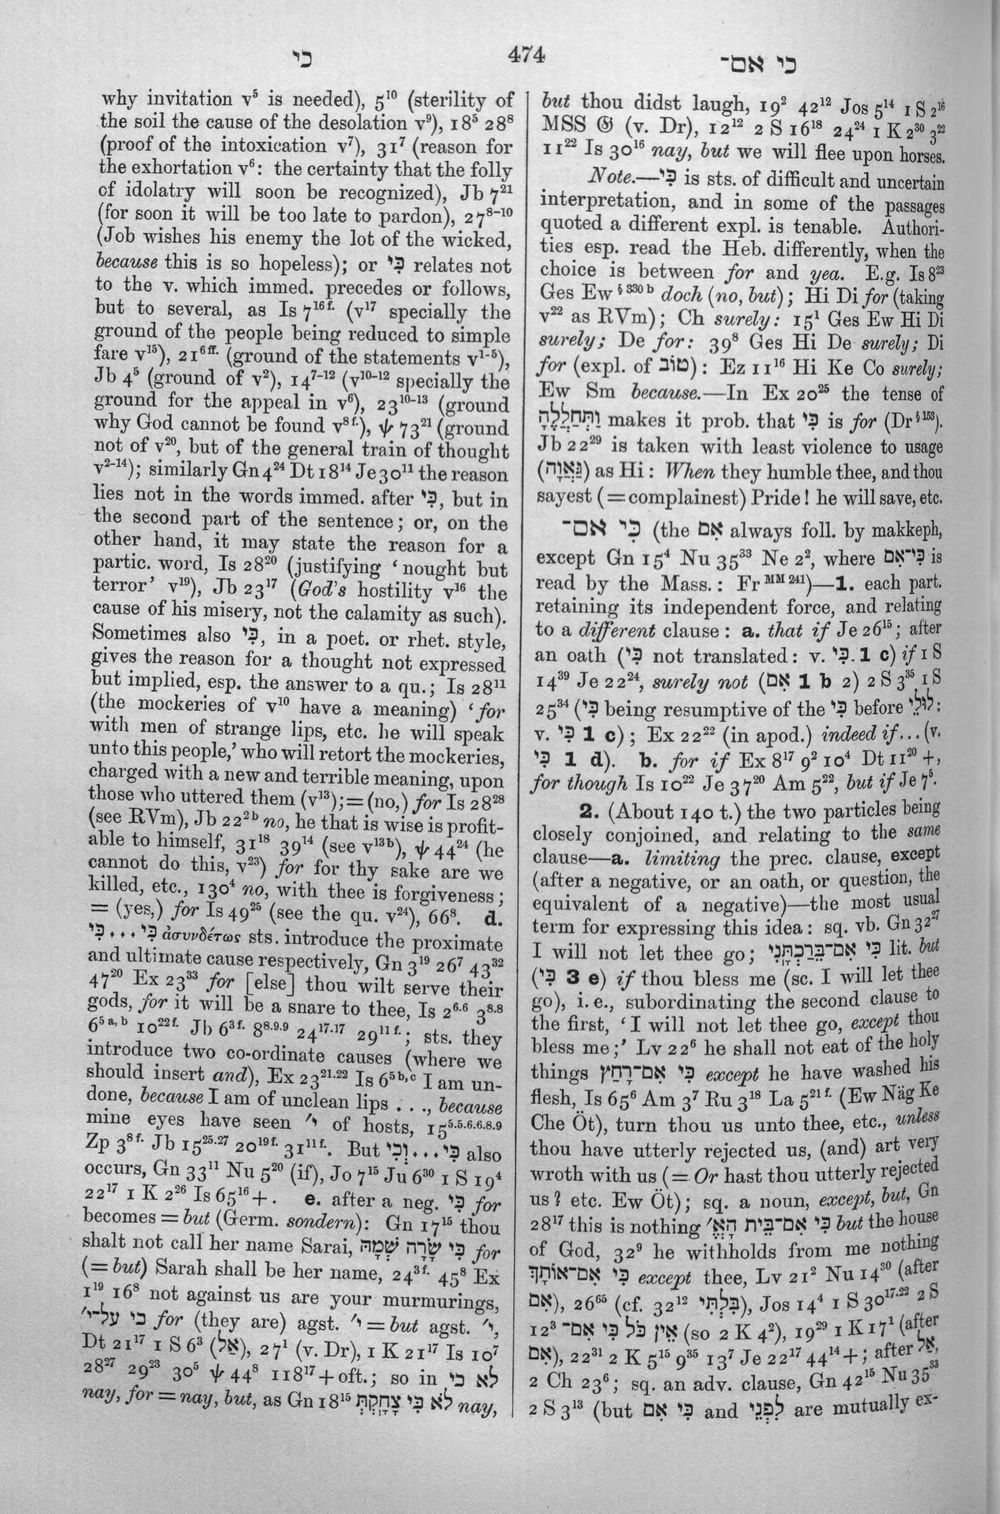 כי
474
כי אם־
why invitation v⁵ is needed), 5¹⁰ (sterility of
the soil the cause of the desolation v⁹), 18⁵ 28⁸
(proof of the intoxication v⁷), 31⁷ (reason for
the exhortation v⁶: the certainty that the folly
of idolatry will soon be recognized), Jb 7²¹
(for soon it will be too late to pardon), 27⁸⁻¹⁰
(Job wishes his enemy the lot of the wicked,
because this is so hopeless); or כִּי relates not
to the v. which immed. precedes or follows,
but to several, as Is 7¹⁶ᶠ· (v¹⁷ specially the
ground of the people being reduced to simple
fare v¹⁵), 21⁶ᶠᶠ· (ground of the statements v¹⁻⁵),
Jb 4⁵ (ground of v²), 14⁷⁻¹² (v¹⁰⁻¹² specially the
ground for the appeal in v⁶), 23¹⁰⁻¹³ (ground
why God cannot be found v⁸ᶠ·), ψ 73²¹ (ground
not of v²⁰, but of the general train of thought
v²⁻¹⁴); similarly Gn 4²⁴ Dt 18¹⁴ Je 30¹¹ the reason
lies not in the words immed. after כִּי, but in
the second part of the sentence; or, on the
other hand, it may state the reason for a
partic. word, Is 28²⁰ (justifying ‘nought but
terror’ v¹⁹), Jb 23¹⁷ (God’s hostility v¹⁶ the
cause of his misery, not the calamity as such).
Sometimes also כִּי, in a poet. or rhet. style,
gives the reason for a thought not expressed
but implied, esp. the answer to a qu.; Is 28¹¹
(the mockeries of v¹⁰ have a meaning) ‘for
with men of strange lips, etc. he will speak
unto this people,’ who will retort the mockeries,
charged with a new and terrible meaning, upon
those who uttered them (v¹³); = (no,) for Is 28²⁸
(see RVm), Jb 22²ᵇ no, he that is wise is profit-
able to himself, 31¹⁸ 39¹⁴ (see v¹³ᵇ), ψ 44²⁴ (he
cannot do this, v²³) for for thy sake are we
killed, etc., 130⁴ no, with thee is forgiveness;
= (yes,) for Is 49²⁵ (see the qu. v²⁴), 66⁸. d.
כִּי . . . כִּי ἀσυνδέτως sts. introduce the proximate
and ultimate cause respectively, Gn 3¹⁹ 26⁷ 43³²
47²⁰ Ex 23³³ for [else] thou wilt serve their
gods, for it will be a snare to thee, Is 2⁶·⁶ 3⁸·⁸
6⁵ᵃ,ᵇ 10²²ᶠ· Jb 6³ᶠ· 8⁸·⁹·⁹ 24¹⁷·¹⁷ 29¹¹ᶠ·; sts. they
introduce two co-ordinate causes (where we
should insert and), Ex 23²¹·²² Is 6⁵ᵇ,ᶜ I am un-
done, because I am of unclean lips . . ., because
mine eyes have seen י׳ of hosts, 15⁵·⁵·⁶·⁶·⁸·⁹
Zp 3⁸ᶠ· Jb 15²⁵·²⁷ 20¹⁹ᶠ· 31¹¹ᶠ·. But כִּי . . . וְכִי also
occurs, Gn 33¹¹ Nu 5²⁰ (if), Jo 7¹⁵ Ju 6³⁰ 1 S 19⁴
22¹⁷ 1 K 2²⁶ Is 65¹⁶ +. e. after a neg. כִּי for
becomes = but (Germ. sondern): Gn 17¹⁵ thou
shalt not call her name Sarai, כִּי שָׂרָה שְׁמָהּ for
(= but) Sarah shall be her name, 24³ᶠ· 45⁸ Ex
1¹⁹ 16⁸ not against us are your murmurings,
כי על־י׳ for (they are) agst. י׳ = but agst. י׳,
Dt 21¹⁷ 1 S 6³ (אַל), 27¹ (v. Dr), 1 K 21¹⁷ Is 10⁷
28²⁷ 29²³ 30⁵ ψ 44⁸ 118¹⁷ + oft.; so in לא כי
nay, for = nay, but, as Gn 18¹⁵ לֹא כִּי צָחָקְתְּ nay,
but thou didst laugh, 19² 42¹² Jos 5¹⁴ 1 S 2¹⁶
MSS 𝔊 (v. Dr), 12¹² 2 S 16¹⁸ 24²⁴ 1 K 2³⁰ 3²²
11²² Is 30¹⁶ nay, but we will flee upon horses.
Note.—כִּי is sts. of difficult and uncertain
interpretation, and in some of the passages
quoted a different expl. is tenable. Authori-
ties esp. read the Heb. differently, when the
choice is between for and yea. E.g. Is 8²³
Ges Ew § ³³⁰ ᵇ doch (no, but); Hi Di for (taking
v²² as RVm); Ch surely: 15¹ Ges Ew Hi Di
surely; De for: 39⁸ Ges Hi De surely; Di
for (expl. of טוֹב): Ez 11¹⁶ Hi Ke Co surely;
Ew Sm because.—In Ex 20²⁵ the tense of
וַתְּחַלְלֶהָ makes it prob. that כִּי is for (Dr § ¹⁵³).
Jb 22²⁹ is taken with least violence to usage
(גֵּאָוָה) as Hi: When they humble thee, and thou
sayest (= complainest) Pride! he will save, etc.
כִּי אִם־ (the אִם always foll. by makkeph,
except Gn 15⁴ Nu 35³³ Ne 2², where כִּי־אִם is
read by the Mass.: Fr ᴹᴹ ²⁴¹)—1. each part.
retaining its independent force, and relating
to a different clause: a. that if Je 26¹⁵; after
an oath (כִּי not translated: v. כִּי. 1 c) if 1 S
14³⁹ Je 22²⁴, surely not (אִם 1 b 2) 2 S 3³⁵ 1 S
25³⁴ (כִּי being resumptive of the כִּי before לוּלֵי:
v. כִּי 1 c); Ex 22²² (in apod.) indeed if... (v.
כִּי 1 d). b. for if Ex 8¹⁷ 9² 10⁴ Dt 11²⁰ +,
for though Is 10²² Je 37²⁰ Am 5²², but if Je 7⁵.
2. (About 140 t.) the two particles being
closely conjoined, and relating to the same
clause—a. limiting the prec. clause, except
(after a negative, or an oath, or question, the
equivalent of a negative)—the most usual
term for expressing this idea: sq. vb. Gn 32²⁷
I will not let thee go; כִּי אִם־בֵּרַכְתָּנִי lit. but
(כִּי 3 e) if thou bless me (sc. I will let thee
go), i. e., subordinating the second clause to
the first, ‘I will not let thee go, except thou
bless me;’ Lv 22⁶ he shall not eat of the holy
things כִּי אִם־רָחַץ except he have washed his
flesh, Is 65⁶ Am 3⁷ Ru 3¹⁸ La 5²¹ᶠ· (Ew Näg Ke
Che Öt), turn thou us unto thee, etc., unless
thou have utterly rejected us, (and) art very
wroth with us (= Or hast thou utterly rejected
us? etc. Ew Öt); sq. a noun, except, but, Gn
28¹⁷ this is nothing כִּי אִם־בֵּית הָא׳ but the house
of God, 32⁹ he withholds from me nothing
כִּי אִם־אוֹתָךְ except thee, Lv 21² Nu 14³⁰ (after
אִם), 26⁶⁵ (cf. 32¹² בִּלְתִּי), Jos 14⁴ 1 S 30¹⁷·²² 2 S
12³ אֵין כֹּל כִּי אִם־ (so 2 K 4²), 19²⁹ 1 K 17¹ (after
אִם), 22³¹ 2 K 5¹⁵ 9³⁵ 13⁷ Je 22¹⁷ 44¹⁴ +; after אַל,
2 Ch 23⁶; sq. an adv. clause, Gn 42¹⁵ Nu 35³³
2 S 3¹³ (but כִּי אִם and לִפְנֵי are mutually ex-